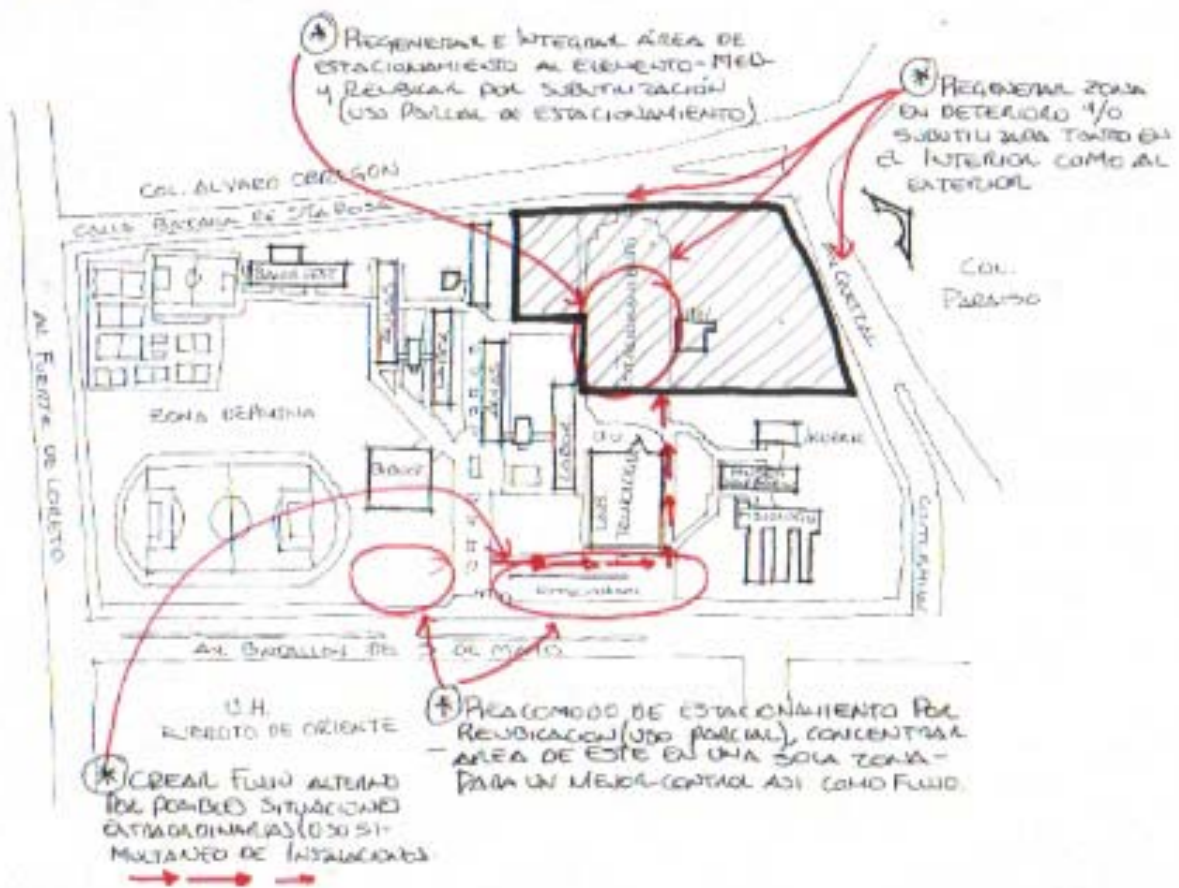 * REGENERAR E INTEGRAR ÁREA DE
ESTACIONAMIENTO AL ELEMENTO-MEU-
Y REUBICAR POR SUBUTILIZACIÓN
(USO PARCIAL DE ESTACIONAMIENTO)
* REGENERAR ZONA
EN DETERIORO Y/O
SUBUTILIZADA TANTO EN
EL INTERIOR COMO AL
EXTERIOR
COL. ALVARO OBREGÓN
CALLE BATALLA DE
COL.
PARAISO
AV. FUERTE DE LORETO
AULAS
LABOR
AULAS
LABOR
ESTACIONAMIENTO
ZONA DEPORTIVA
TECNOLOGIA
AV. BATALLON DEL 5 DE MAYO
U.H.
EJERCITO DE ORIENTE
* REACOMODO DE ESTACIONAMIENTO POR
REUBICACION (USO PARCIAL), CONCENTRAR
- AREA DE ESTE EN UNA SOLA ZONA -
PARA UN MEJOR CONTROL ASI COMO FLUJO.
* CREAR FLUJO ALTERNO
POR POSIBLES SITUACIONES
EXTRAORDINARIAS (USO SI-
MULTANEO DE INSTALACIONES